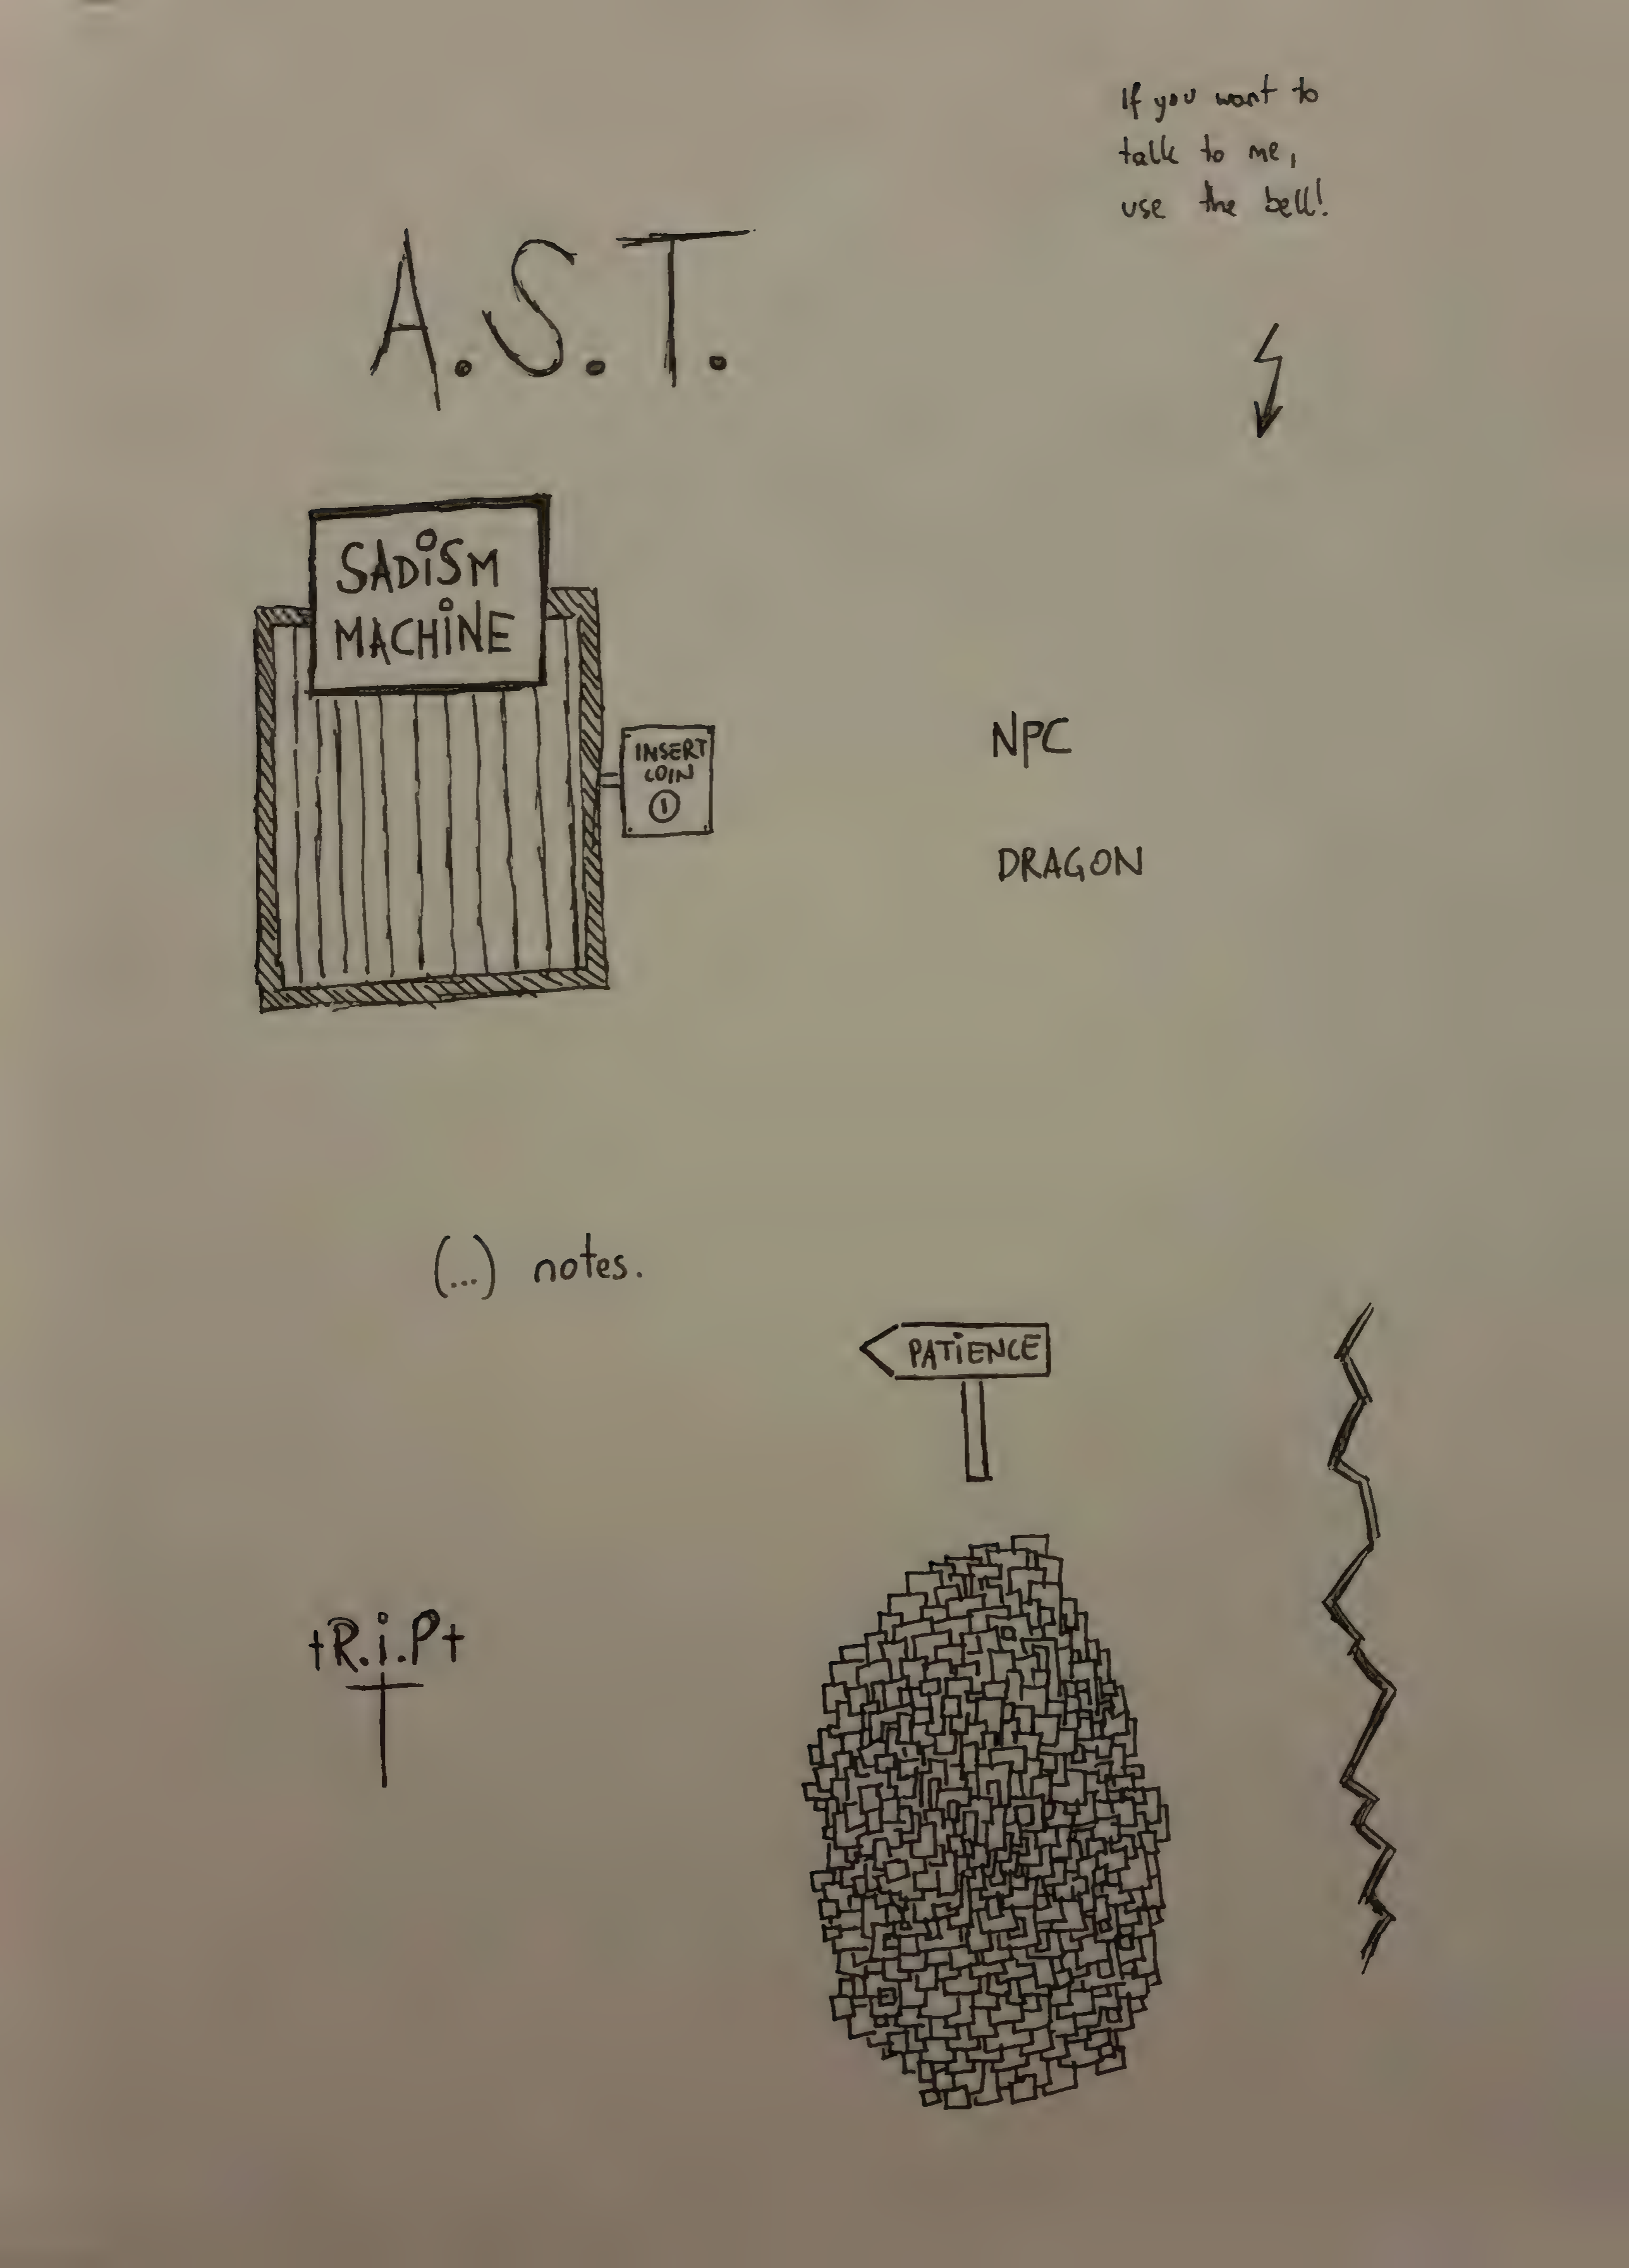 If you want to
talk to me,
use the bell!
A.S.T.
SADiSM
MACHiNE
INSERT
COIN
1
NPC
DRAGON
(...) notes.
PATiENCE
†R.i.P†